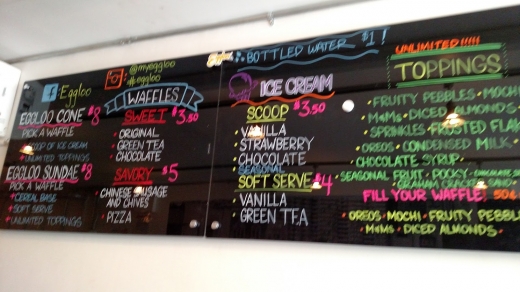 Eggloo
@myeggloo
#eggloo
WAFFLES
EGGLOO CONE $8
PICK A WAFFLE
SCOOP OF ICE CREAM
UNLIMITED TOPPINGS
EGGLOO SUNDAE $8
PICK A WAFFLE
CEREAL BASE
SOFT SERVE
UNLIMITED TOPPINGS
SWEET $3.50
ORIGINAL
GREEN TEA
CHOCOLATE
SAVORY $5
CHINESE SAUSAGE
AND CHIVES
PIZZA
BOTTLED WATER $1!
ICE CREAM
SCOOP $3.50
VANILLA
STRAWBERRY
CHOCOLATE
SEASONAL
SOFT SERVE $4
VANILLA
GREEN TEA
UNLIMITED!!!!!
TOPPINGS
FRUITY PEBBLES • MOCHI
M&MS • DICED ALMONDS
SPRINKLES • FROSTED FLA
OREOS • CONDENSED MILK
CHOCOLATE SYRUP
SEASONAL FRUIT • POCKY
GRAHAM CRACKER
FILL YOUR WAFFLE! 50¢
• OREOS • MOCHI • FRUITY PEBBL
• M&MS • DICED ALMONDS •